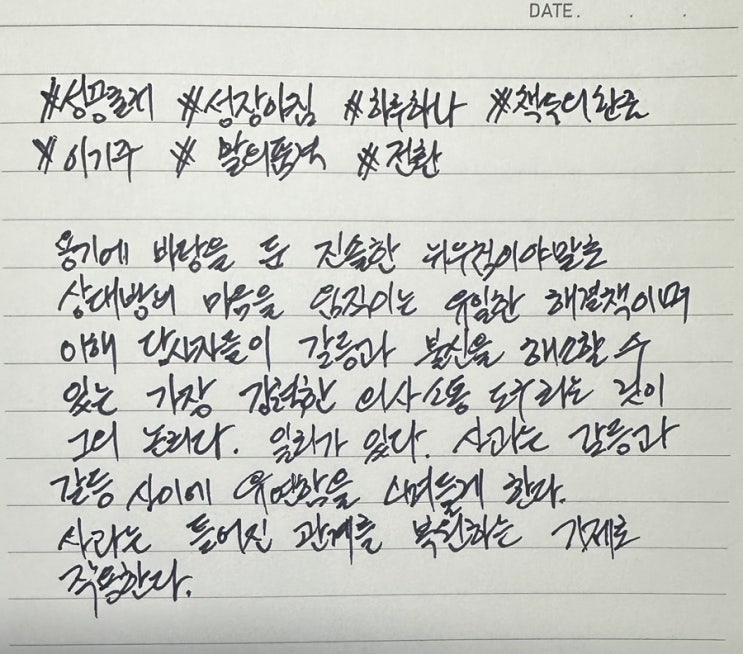 DATE.
#성장아침 #하루하나 #책속의한줄
#이기주 # 말의품격 #전환
용기에 바탕을 둔 진솔한 뉘우침이야말로
상대방의 마음을 움직이는 유일한 해결책이며
이해 당사자들이 갈등과 불신을 해소할 수
있는 가장 강력한 의사소통 도구라는 것이
그의 논리다. 일리가 있다. 사과는 갈등과
갈등 사이에 유연함을 스며들게 한다.
사과는 틀어진 관계를 복원하는 기제로
작용한다.